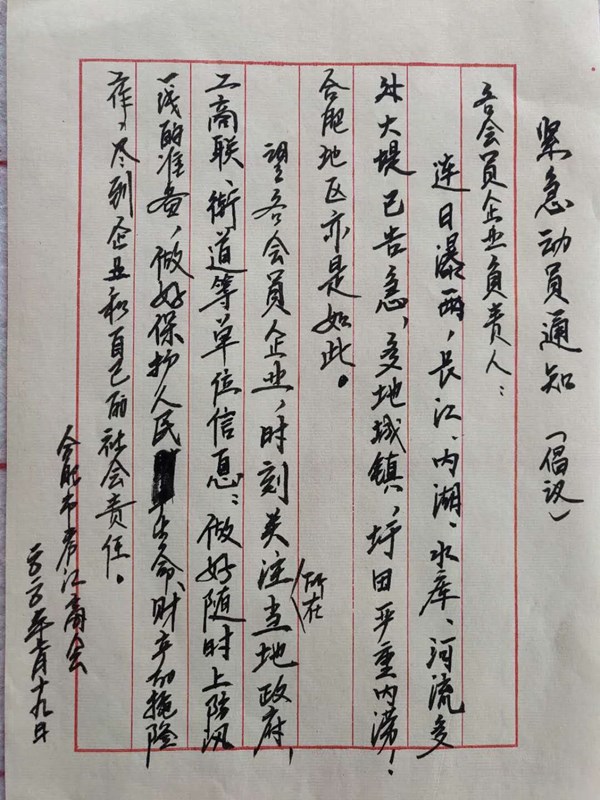 紧急动员通知（倡议）
各会员企业负责人：
连日瀑雨，长江、内湖、水库、河流多
处大堤已告急，多地城镇，圩田严重内涝！
合肥地区亦是如此。
望各会员企业，时刻关注所在当地政府，
工商联、街道等单位信息：做好随时上防汛
一线的准备，做好保护人民生命、财产抢险
工作，尽到企业和自己的社会责任。
合肥市庐江商会
二〇二〇年七月十九日